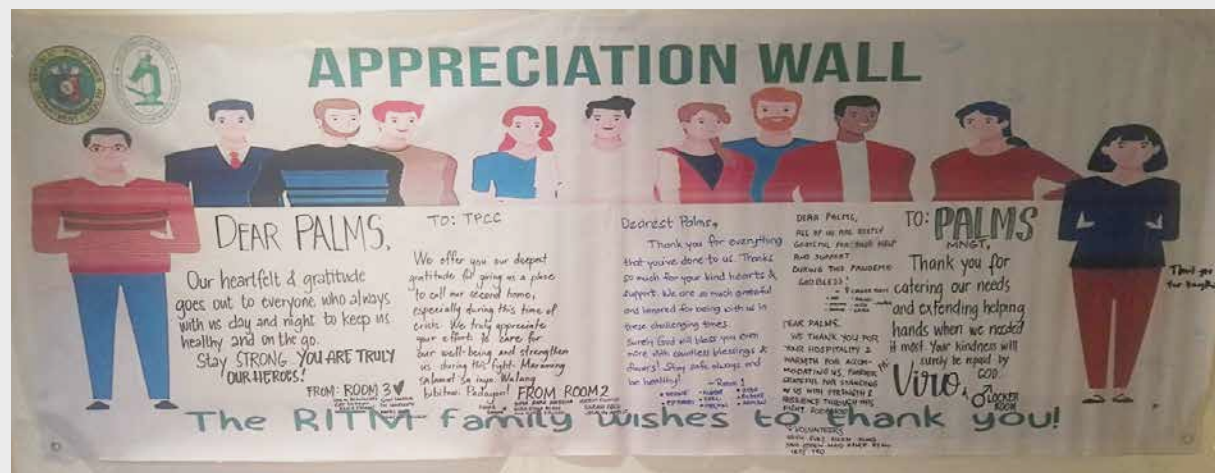 APPRECIATION WALL
DEAR PALMS,
Our heartfelt & gratitude
goes out to everyone who always
with us day and night to keep us
healthy and on the go.
Stay STRONG YOU ARE TRULY
OUR HEROES!
FROM: ROOM 3
TO: TPCC
We offer you our deepest
gratitude for giving us a place
to call our second home,
especially during this time of
crisis. We truly appreciate
your effort to care for
our well-being and strengthen
us during this fight. Maraming
salamat sa inyo. Walang
bibitaw! Padayon!
FROM ROOM 2
Dearest Palms,
Thank you for everything
that you've done to us. Thanks
so much for your kind hearts &
support. We are so much grateful
and honored for being with us in
these challenging times.
Surely God will bless you even
more with countless blessings &
favors! Stay safe always and
be healthy!
- Room 1
DEAR PALMS,
ALL OF US ARE DEEPLY
GRATEFUL FOR YOUR HELP
AND SUPPORT
DURING THIS PANDEMIC
GOD BLESS!
DEAR PALMS,
WE THANK YOU FOR
YOUR HOSPITALITY &
WARMTH FOR ACCOM-
MODATING US, FURTHER
GRATEFUL FOR STANDING
W/ US WITH STRENGTH &
RESILIENCE THROUGH THIS
FIGHT
VOLUNTEERS
TO: PALMS
MNGT,
Thank you for
catering our needs
and extending helping
hands when we needed
it most. Your kindness will
surely be repaid by
GOD.
Viro
LOCKER
ROOM
Thank you
for
The RITM family wishes to thank you!